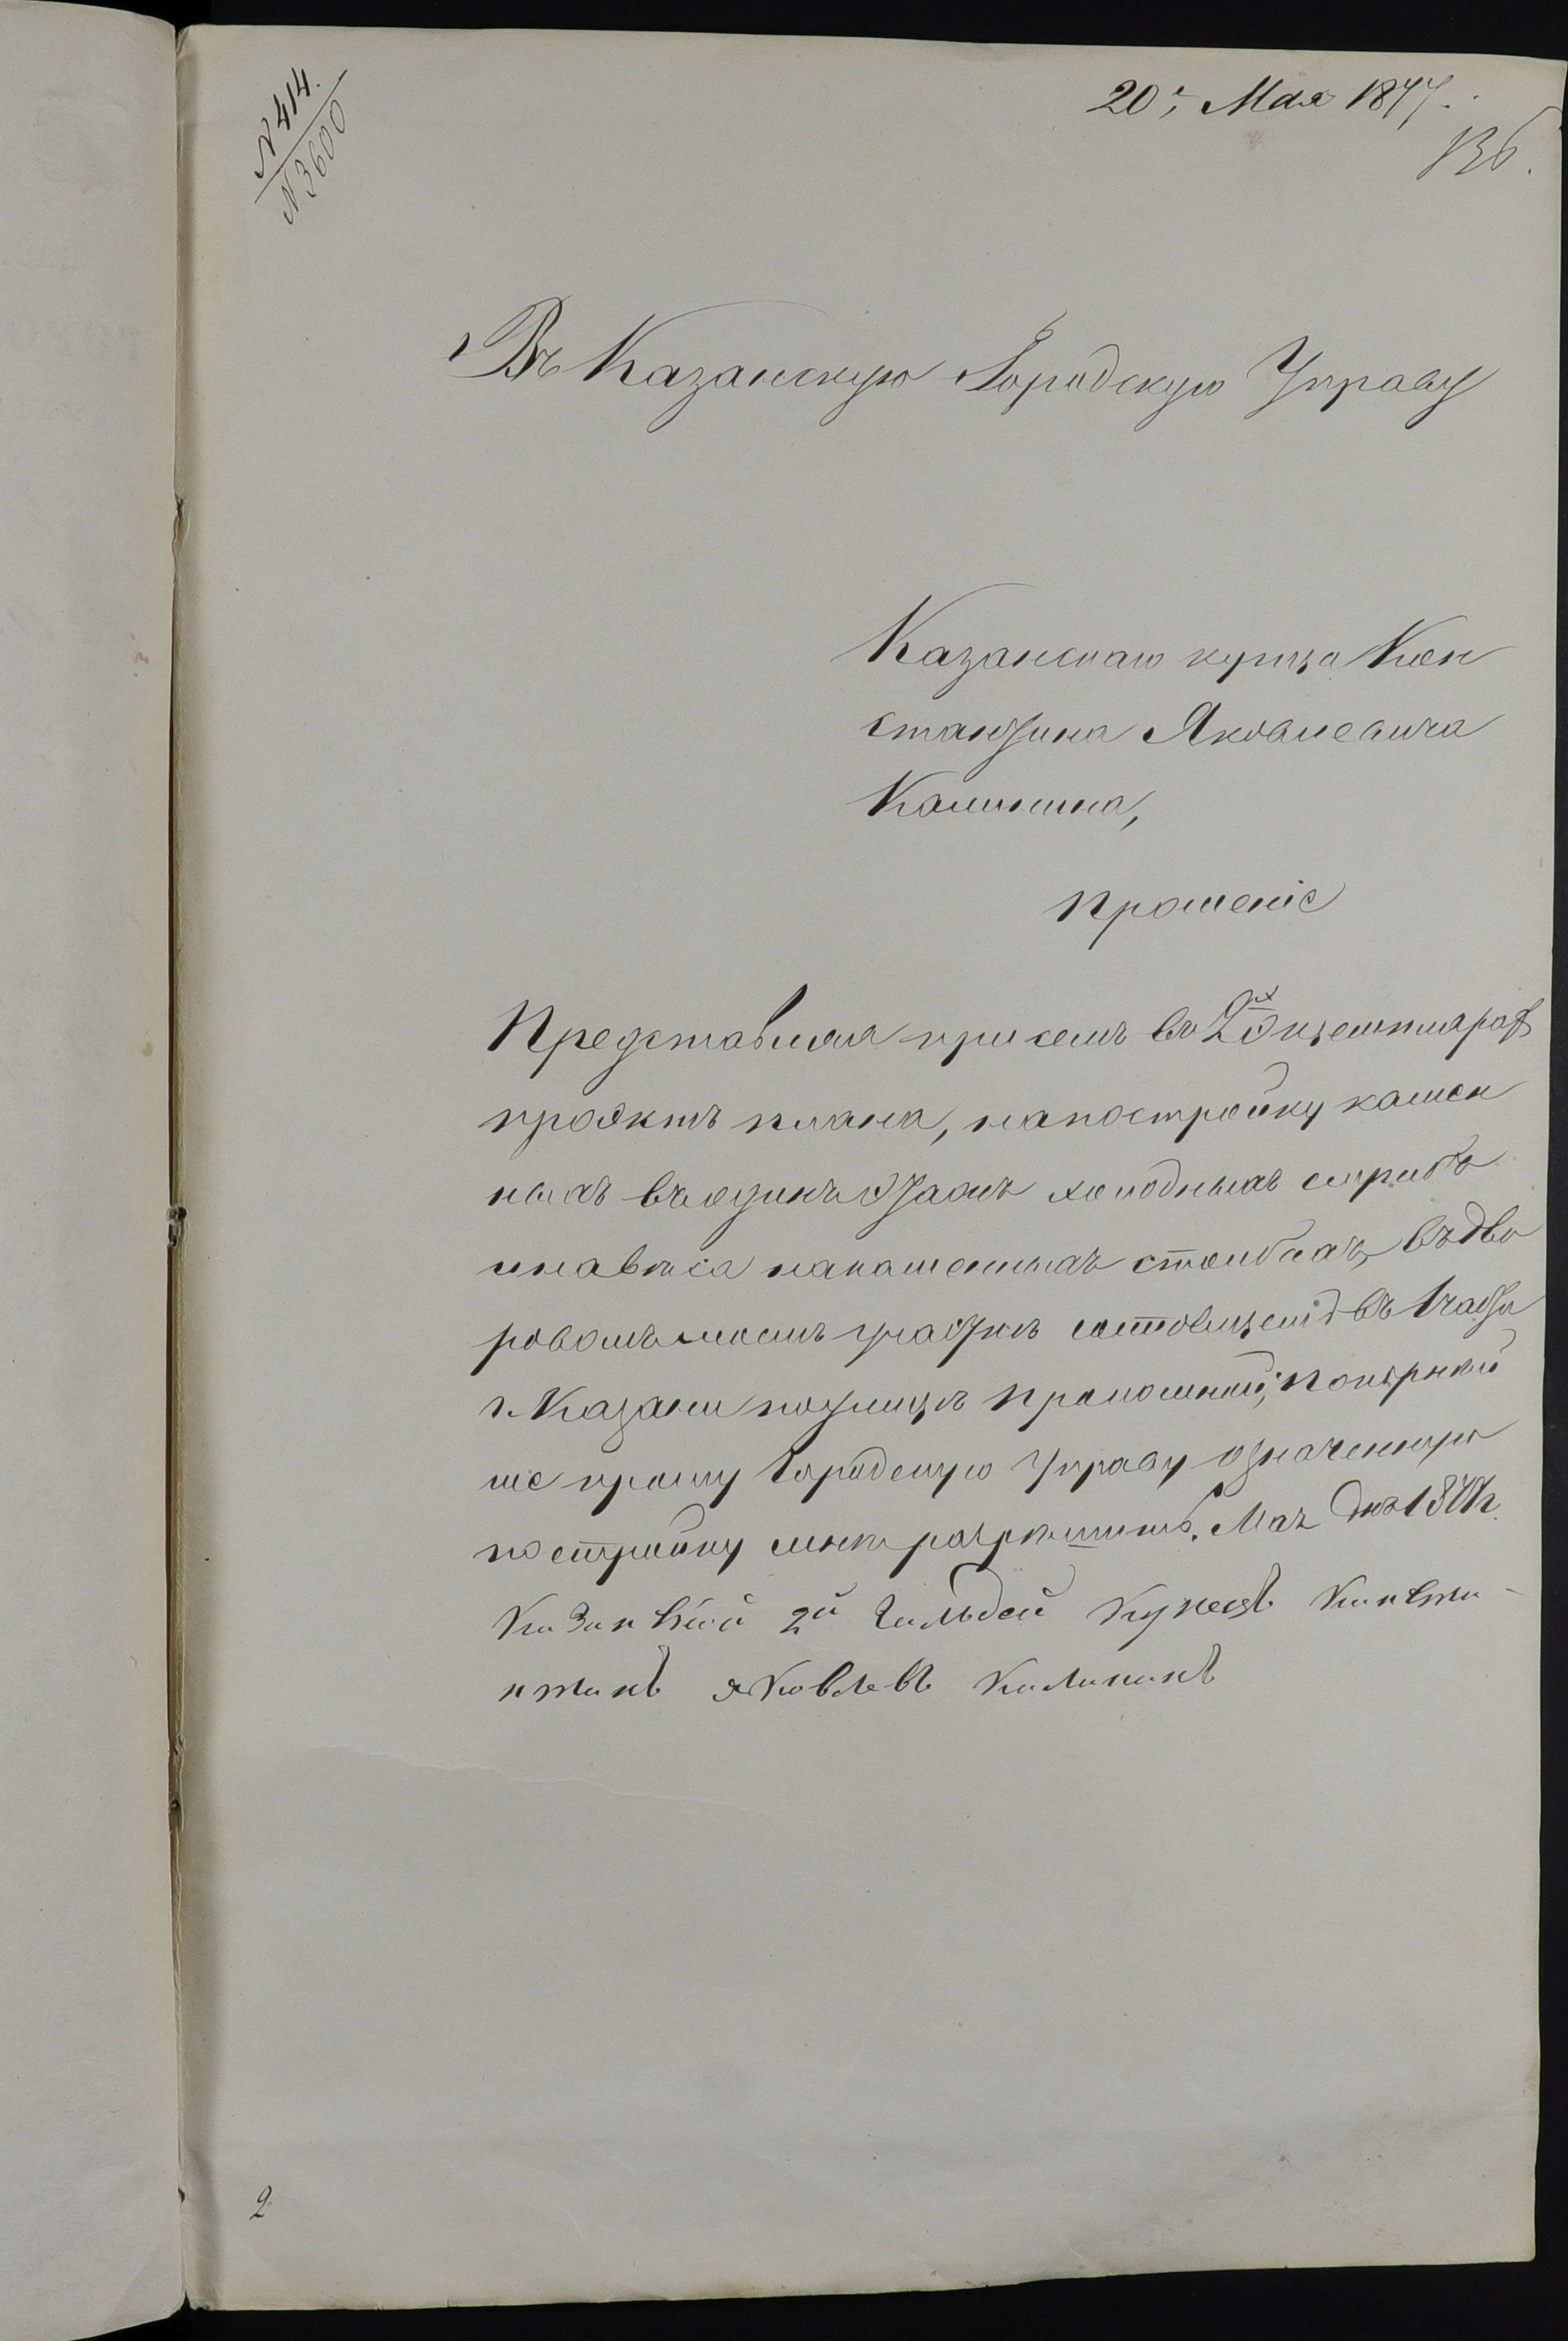 N 414.
N 3600
20го Мая 1877.
136.
Въ Казанскую Городскую Управу
Казанскаго купца Кон
стантина Яковлевича
Калинина,
прошеніе
Представляя присемъ въ 2хъ экземплярахъ
проэктъ плана, на постройку камен
ныхъ въ одинъ этажъ холодныхъ службъ
инавѣса накаменныхъ столбахъ, въ дво
ровомъ моемъ участкѣ состоящемъ въ 1 части
г. Казани поулицѣ Проломной, покорнѣй
ше прошу Городскую Управу означенную
постройку мнѣ разрѣшить. Мая дня 1877 г.
Казанскій 2й Гильдей купецъ Канста
нтинъ Яковлевъ Калининъ
2